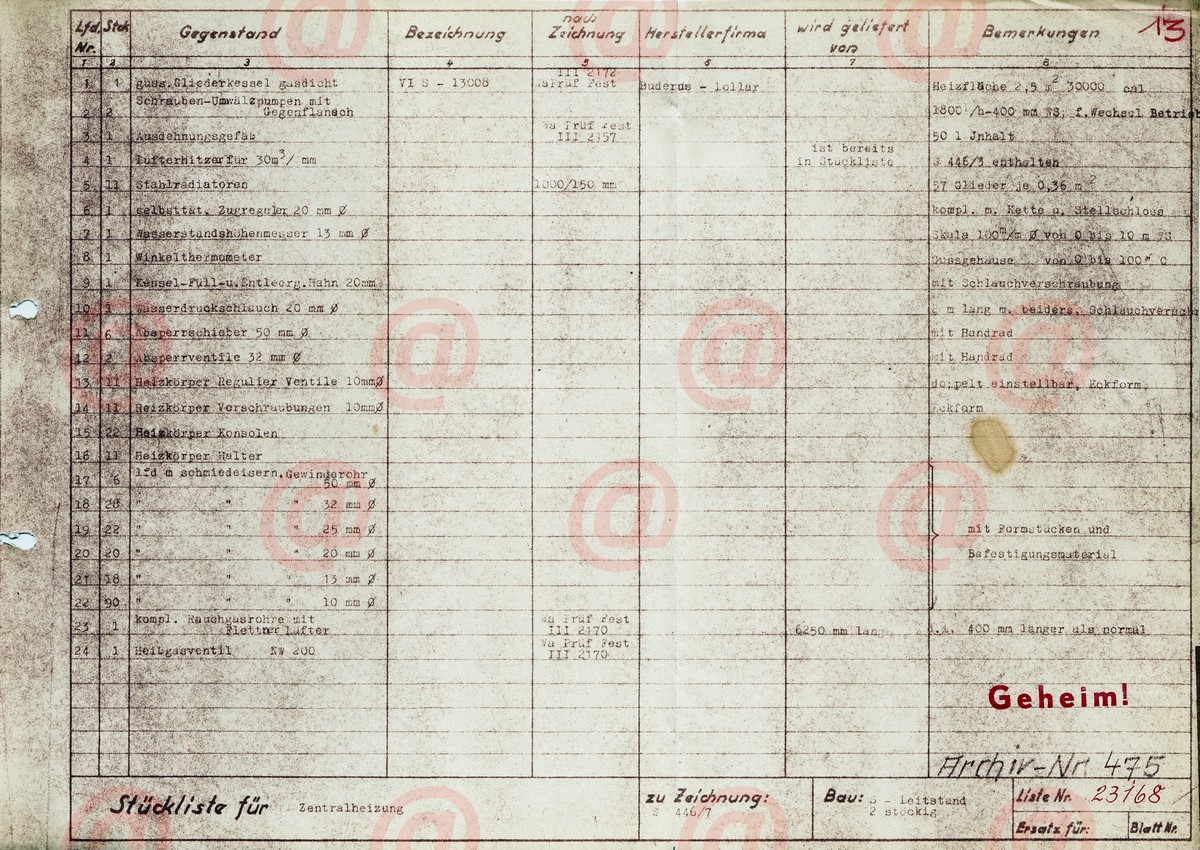 13
Lfd. Nr. Stck Gegenstand Bezeichnung nach Zeichnung Herstellerfirma wird geliefert von Bemerkungen
1 2 3 4 5 6 7 8
1 1 guss.Gliederkessel gasdicht VI S - 13008 III 2172 WaPrüf Fest Buderus - Lollar Heizfläche 2,5 m² 30000 cal
2 2 Schrauben-Umwälzpumpen mit Gegenflansch 1800 l/h-400 mm WS, f.Wechsel Betrieb
3 1 Ausdehnungsgefäß Wa Prüf Fest III 2157 50 l Jnhalt
4 1 Lufterhitzer für 30m³/ mm ist bereits in Stückliste S 446/3 enthalten
5 11 Stahlradiatoren 1000/150 mm 57 Glieder je 0,36 m²
6 1 selbsttät. Zugregeler 20 mm Ø kompl. m. Kette u. Stellschloss
7 1 Wasserstandshöhenmesser 13 mm Ø Skala 100 m/m Ø von 0 bis 10 m WS
8 1 Winkelthermometer von 0 bis 100° C
9 1 Kessel-Füll-u.Entleerg.Hahn 20mm mit Schlauchverschraubung
10 1 Wasserdruckschlauch 20 mm Ø m lang m. beiders. Schlauchverschr
11 6 Absperrschieber 50 mm Ø mit Handrad
12 2 Absperrventile 32 mm Ø mit Handrad
13 11 Heizkörper Regulier Ventile 10mmØ doppelt einstellbar, Eckform
14 11 Heizkörper Verschraubungen 10mmØ Eckform
15 22 Heizkörper Konsolen
16 11 Heizkörper Halter
17 6 lfd m schmiedeisern.Gewinderohr 50 mm Ø
18 28 " " " 32 mm Ø
19 22 " " " 25 mm Ø mit Formstücken und
20 20 " " " 20 mm Ø Befestigungsmaterial
21 18 " " 13 mm Ø
22 90 " " " 10 mm Ø
23 1 kompl. Rauchgasrohre mit Flettner Lüfter Wa Prüf Fest III 2170 6250 mm lang 400 mm länger als normal
24 1 Heißgasventil NW 200 Wa Prüf Fest III 2170
Geheim!
Archiv-Nr. 475
Stückliste für Zentralheizung zu Zeichnung: S 446/7 Bau: S - Leitstand 2 stöckig Liste Nr. 23168
Ersatz für: Blatt Nr.